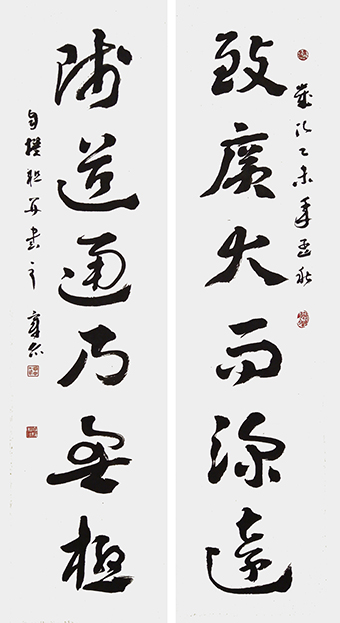 致廣大而深遠
歲次乙未年孟秋
師道通乃無極
自撰联并書之